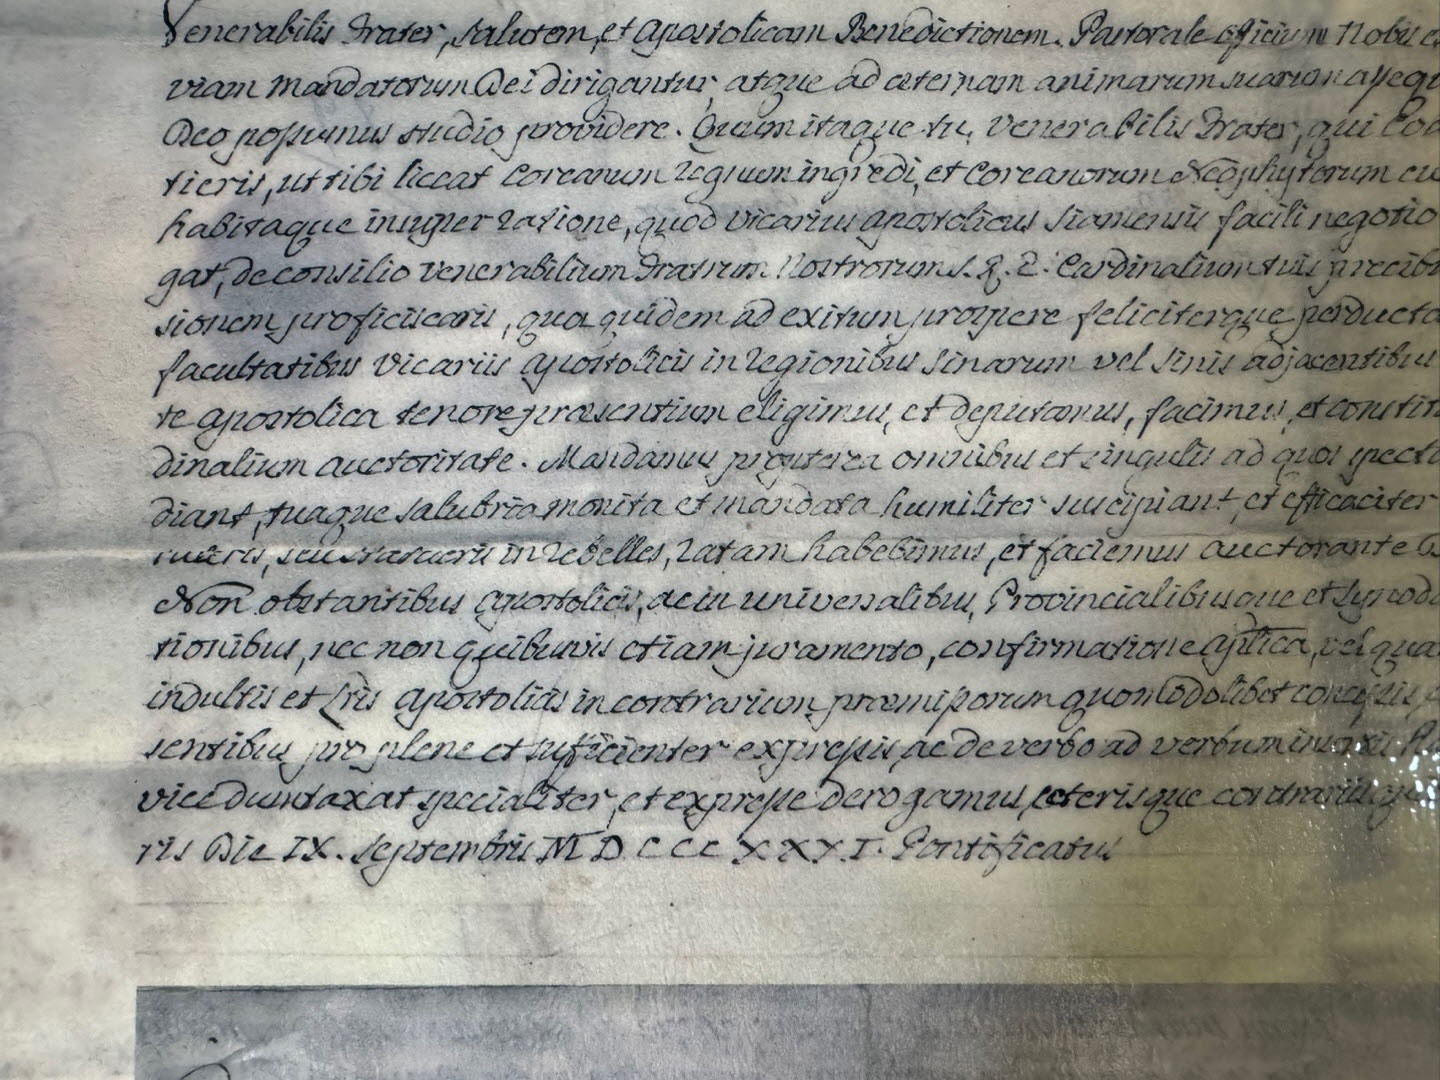 Venerabilis Frater, salutem, et Apostolicam Benedictionem. Pastorale officium Nobis
viam mandatorum Dei dirigantur, atque ad æternam animarum suarum
Deo possumus studio providere. Quum itaque tu, Venerabilis Frater, qui
tieris, ut tibi liceat Coreanum regnum ingredi, et Coreanorum Neophytorum
habitaque insuper ratione, quod Vicarius Apostolicus Siamensis facili negotio
gat, de consilio Venerabilium Fratrum Nostrorum S. R. E. Cardinalium tuis
sionem proficiscaris, qua quidem ad exitum prospere feliciterque
facultatibus Vicariis Apostolicis in regionibus Sinarum vel Sinis adjacentibus
te Apostolica tenore præsentium eligimus, et deputamus, facimus, et
dinalium auctoritate. Mandamus propterea omnibus et singulis ad quos
diant, tuaque salubria monita et mandata humiliter suscipiant, et efficaciter
in rebelles, ratam habebimus, et faciemus auctorante
Non obstantibus Apostolicis, ac in universalibus, Provincialibusque et
tionibus, nec non quibusvis etiam juramento, confirmatione aplica, vel
indultis et Lris Apostolicis in contrarium præmissorum quomodolibet
sentibus pro plene et sufficienter expressis, ac de verbo ad verbum
vice dumtaxat specialiter, et expresse derogamus, ceterisque
ris Die IX. Septembris M D C C C X X X I. Pontificatus